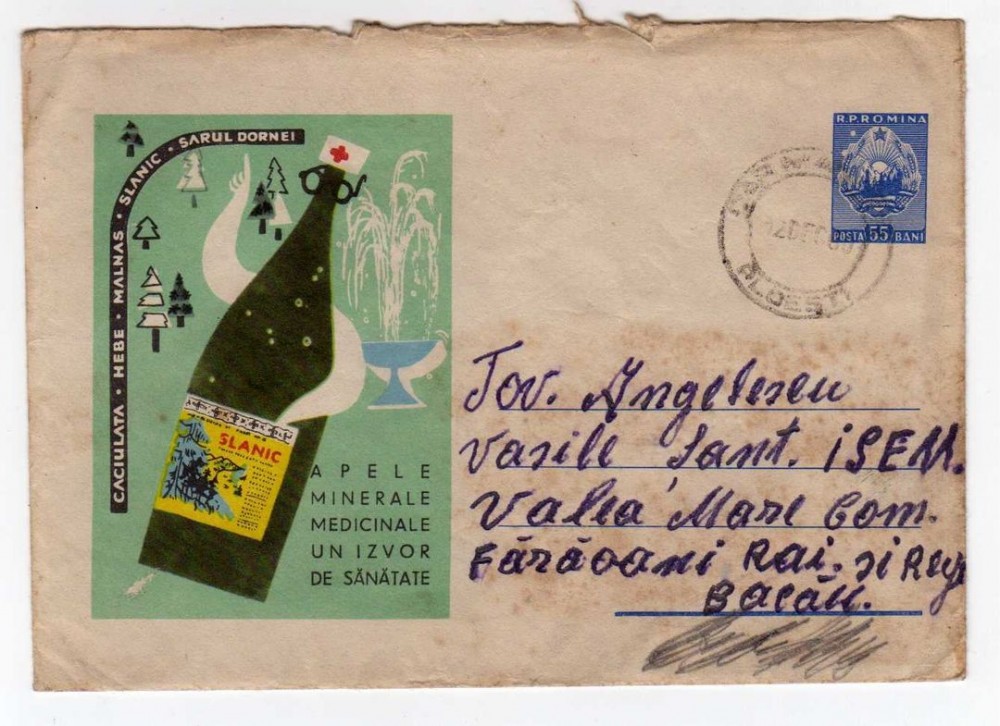 CACIULATA · HEBE · MALNAS · SLANIC · SARUL DORNEI
SLANIC
APELE
MINERALE
MEDICINALE
UN IZVOR
DE SĂNĂTATE
R.P.ROMINA
POSTA 55 BANI
12DEC
PLOESTI
Tov. Angelescu
Vasile Şant. ISEM.
Valea Mare Com.
Fărăoani Rai. și Reg
Bacău.